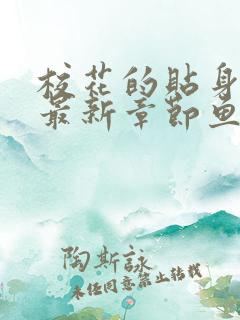 校花的贴身
最新章节鱼
陶斯詠
未经同意禁止转载